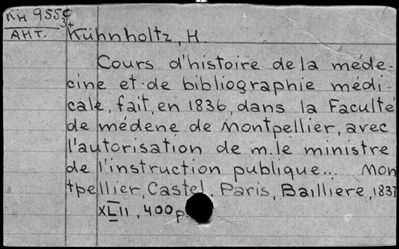 KH 955c
AHT.
Kühnholtz, H
Cours d'histoire de la méde-
cine et de bibliographie médi-
cale, fait, en 1836, dans la Faculté
de médene de Montpellier, avec
l'autorisation de m. le ministre
de l'instruction publique... Mon
tpellier, Castel, Paris, Bailliere, 1837
XLII, 400p